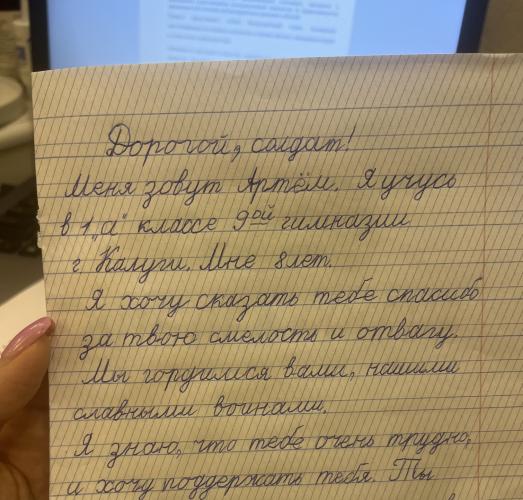 Дорогой, солдат!
Меня зовут Артём. Я учусь
в 1 „а" классе 9ой гимназии
г. Калуги. Мне 8 лет.
Я хочу сказать тебе спасибо
за твою смелость и отвагу.
Мы гордимся вами, нашими
славными воинами.
Я знаю, что тебе очень трудно,
и хочу поддержать тебя. Ты